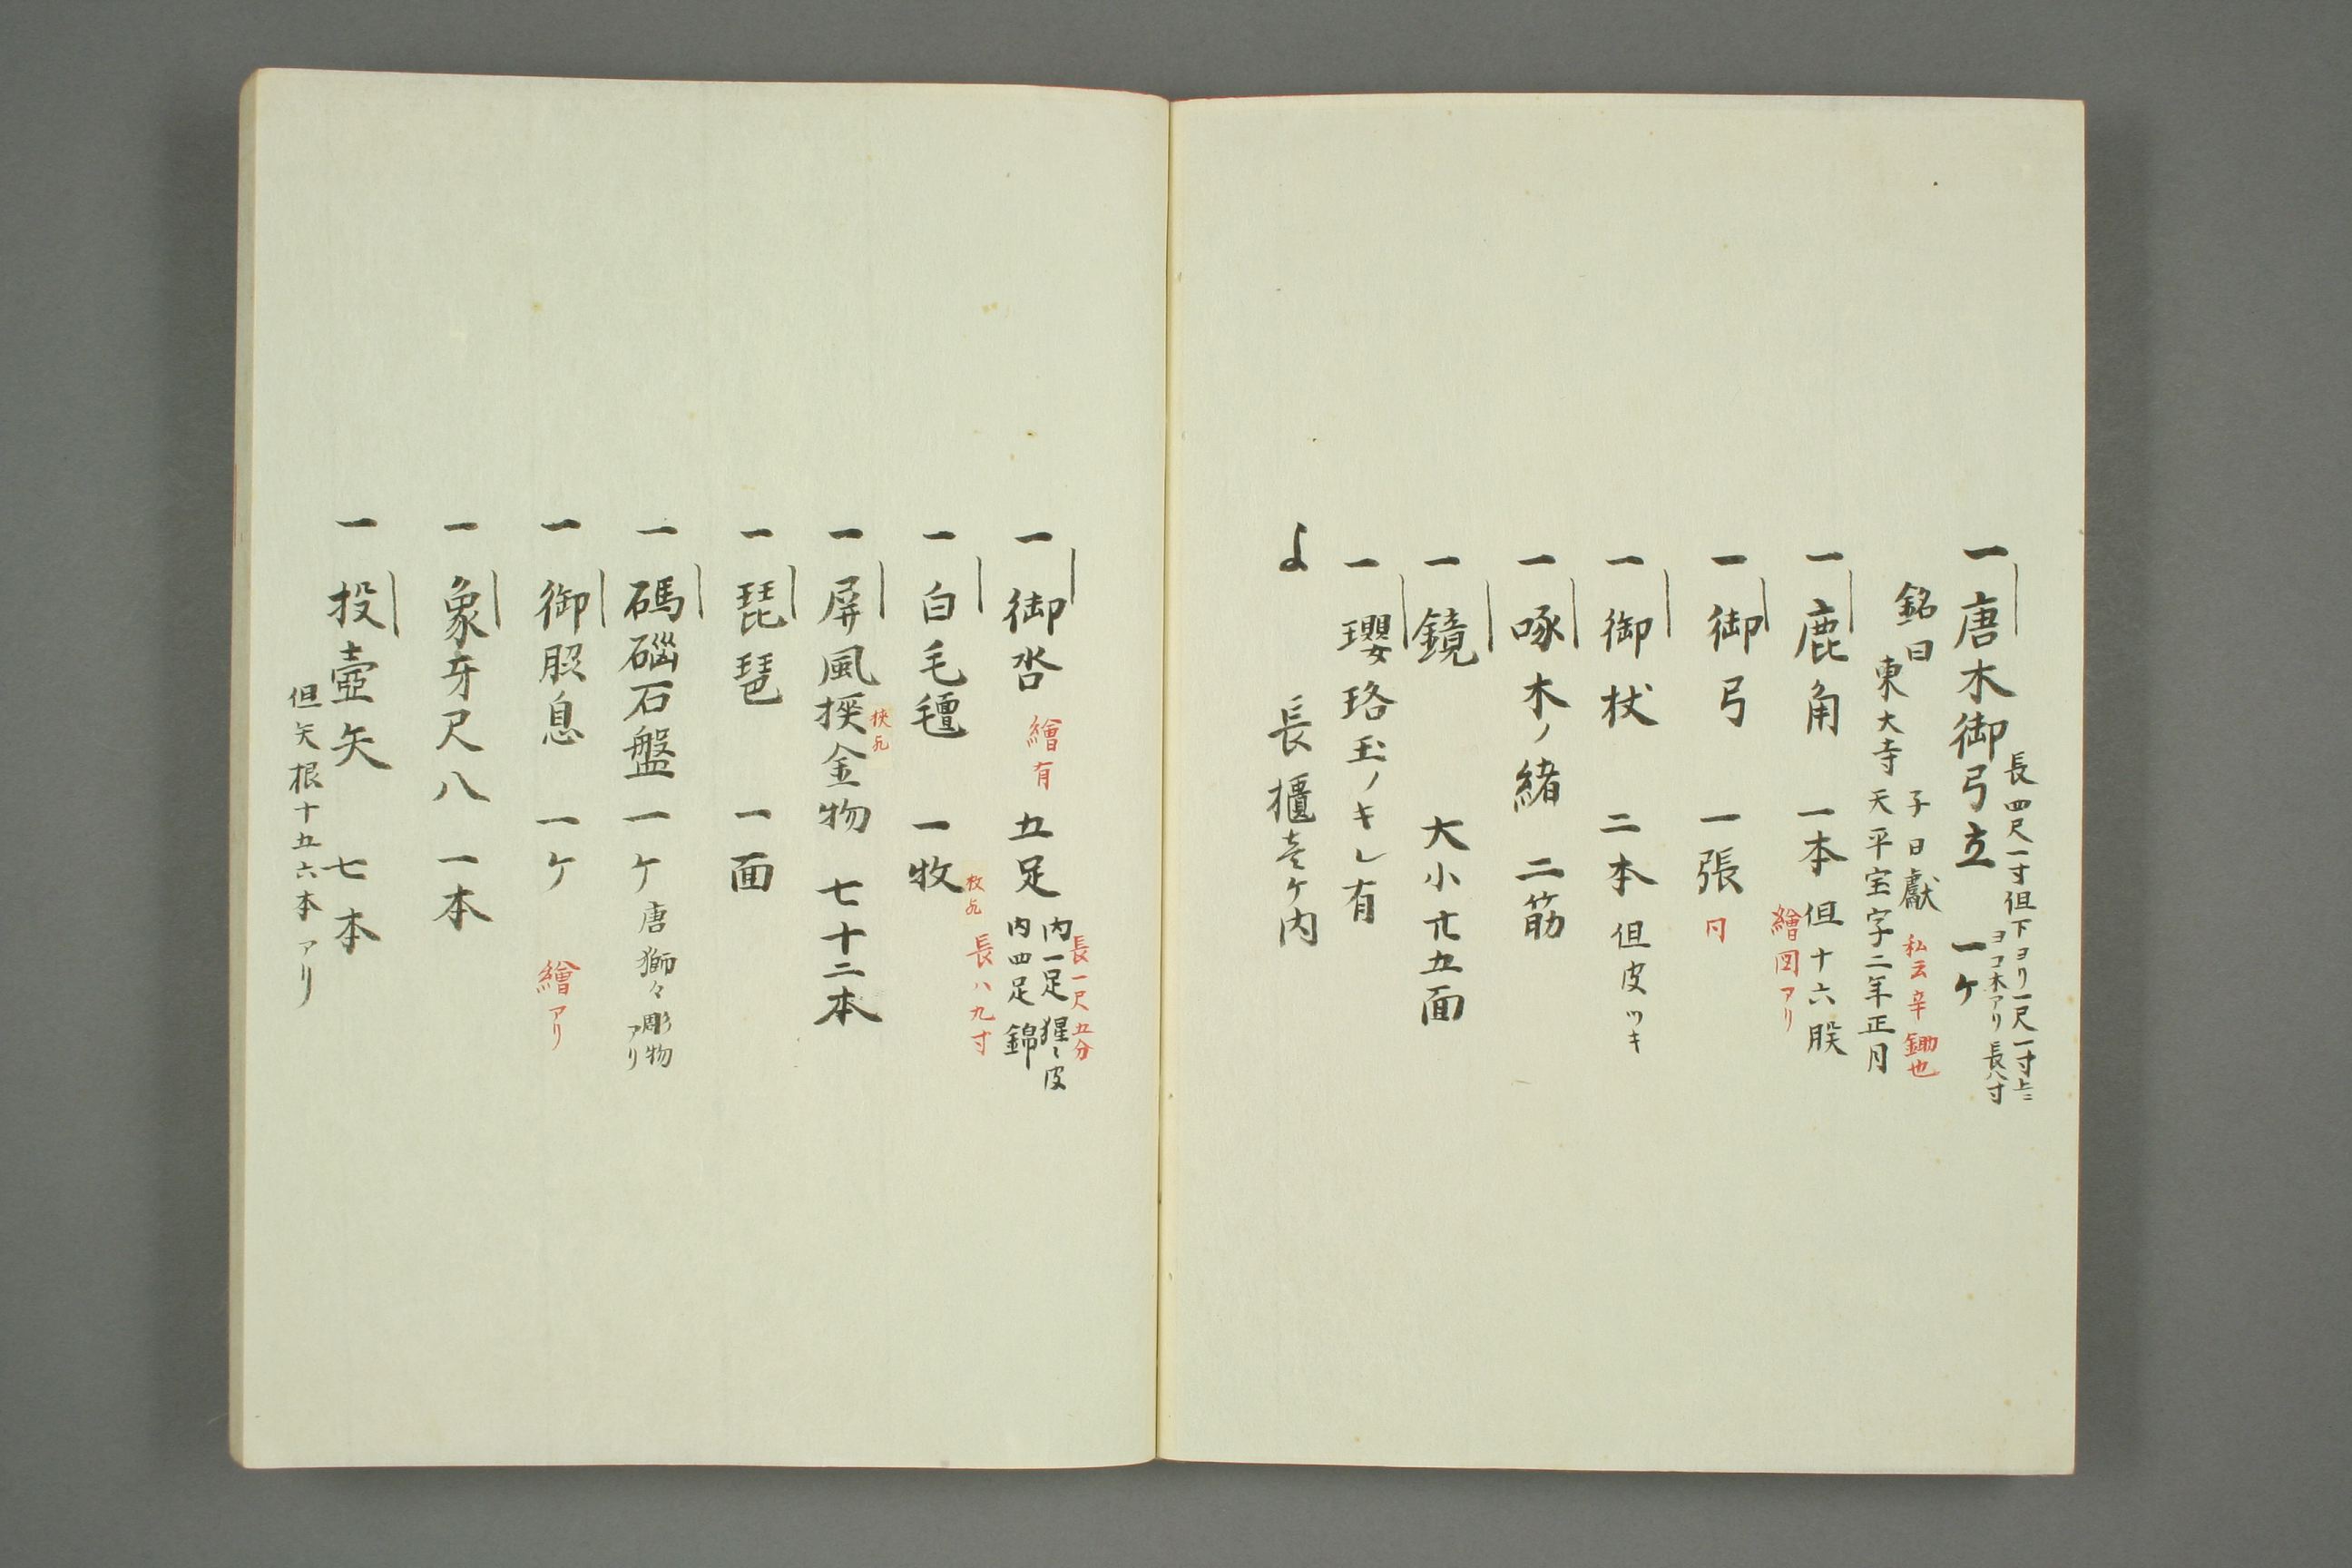 一 唐木御弓立 一ケ 長四尺一寸但下ヨリ一尺一寸上ニ
ヨコ木アリ長八寸
銘曰 東大寺 子日獻 私云辛鋤也
天平宝字二年正月
一 鹿角 一本 但十六股
繪図アリ
一 御弓 一張 同
一 御杖 二本 但皮ツキ
一 啄木ノ緒 二筋
一 鏡 大小卄五面
一 瓔珞玉ノキレ有
よ 長櫃壱ケ内
一 御沓 繪有 五足 内一足猩々皮 長一尺五分
内四足錦
一 白毛氊 一牧 枚乎 長八九寸
一 屏風挾金物 七十二本 挟乎
一 琵琶 一面
一 碼碯石盤 一ケ 唐獅々彫物
アリ
一 御脇息 一ケ 繪アリ
一 象牙尺八 一本
一 投壺矢 七本
但矢根十五六本アリ